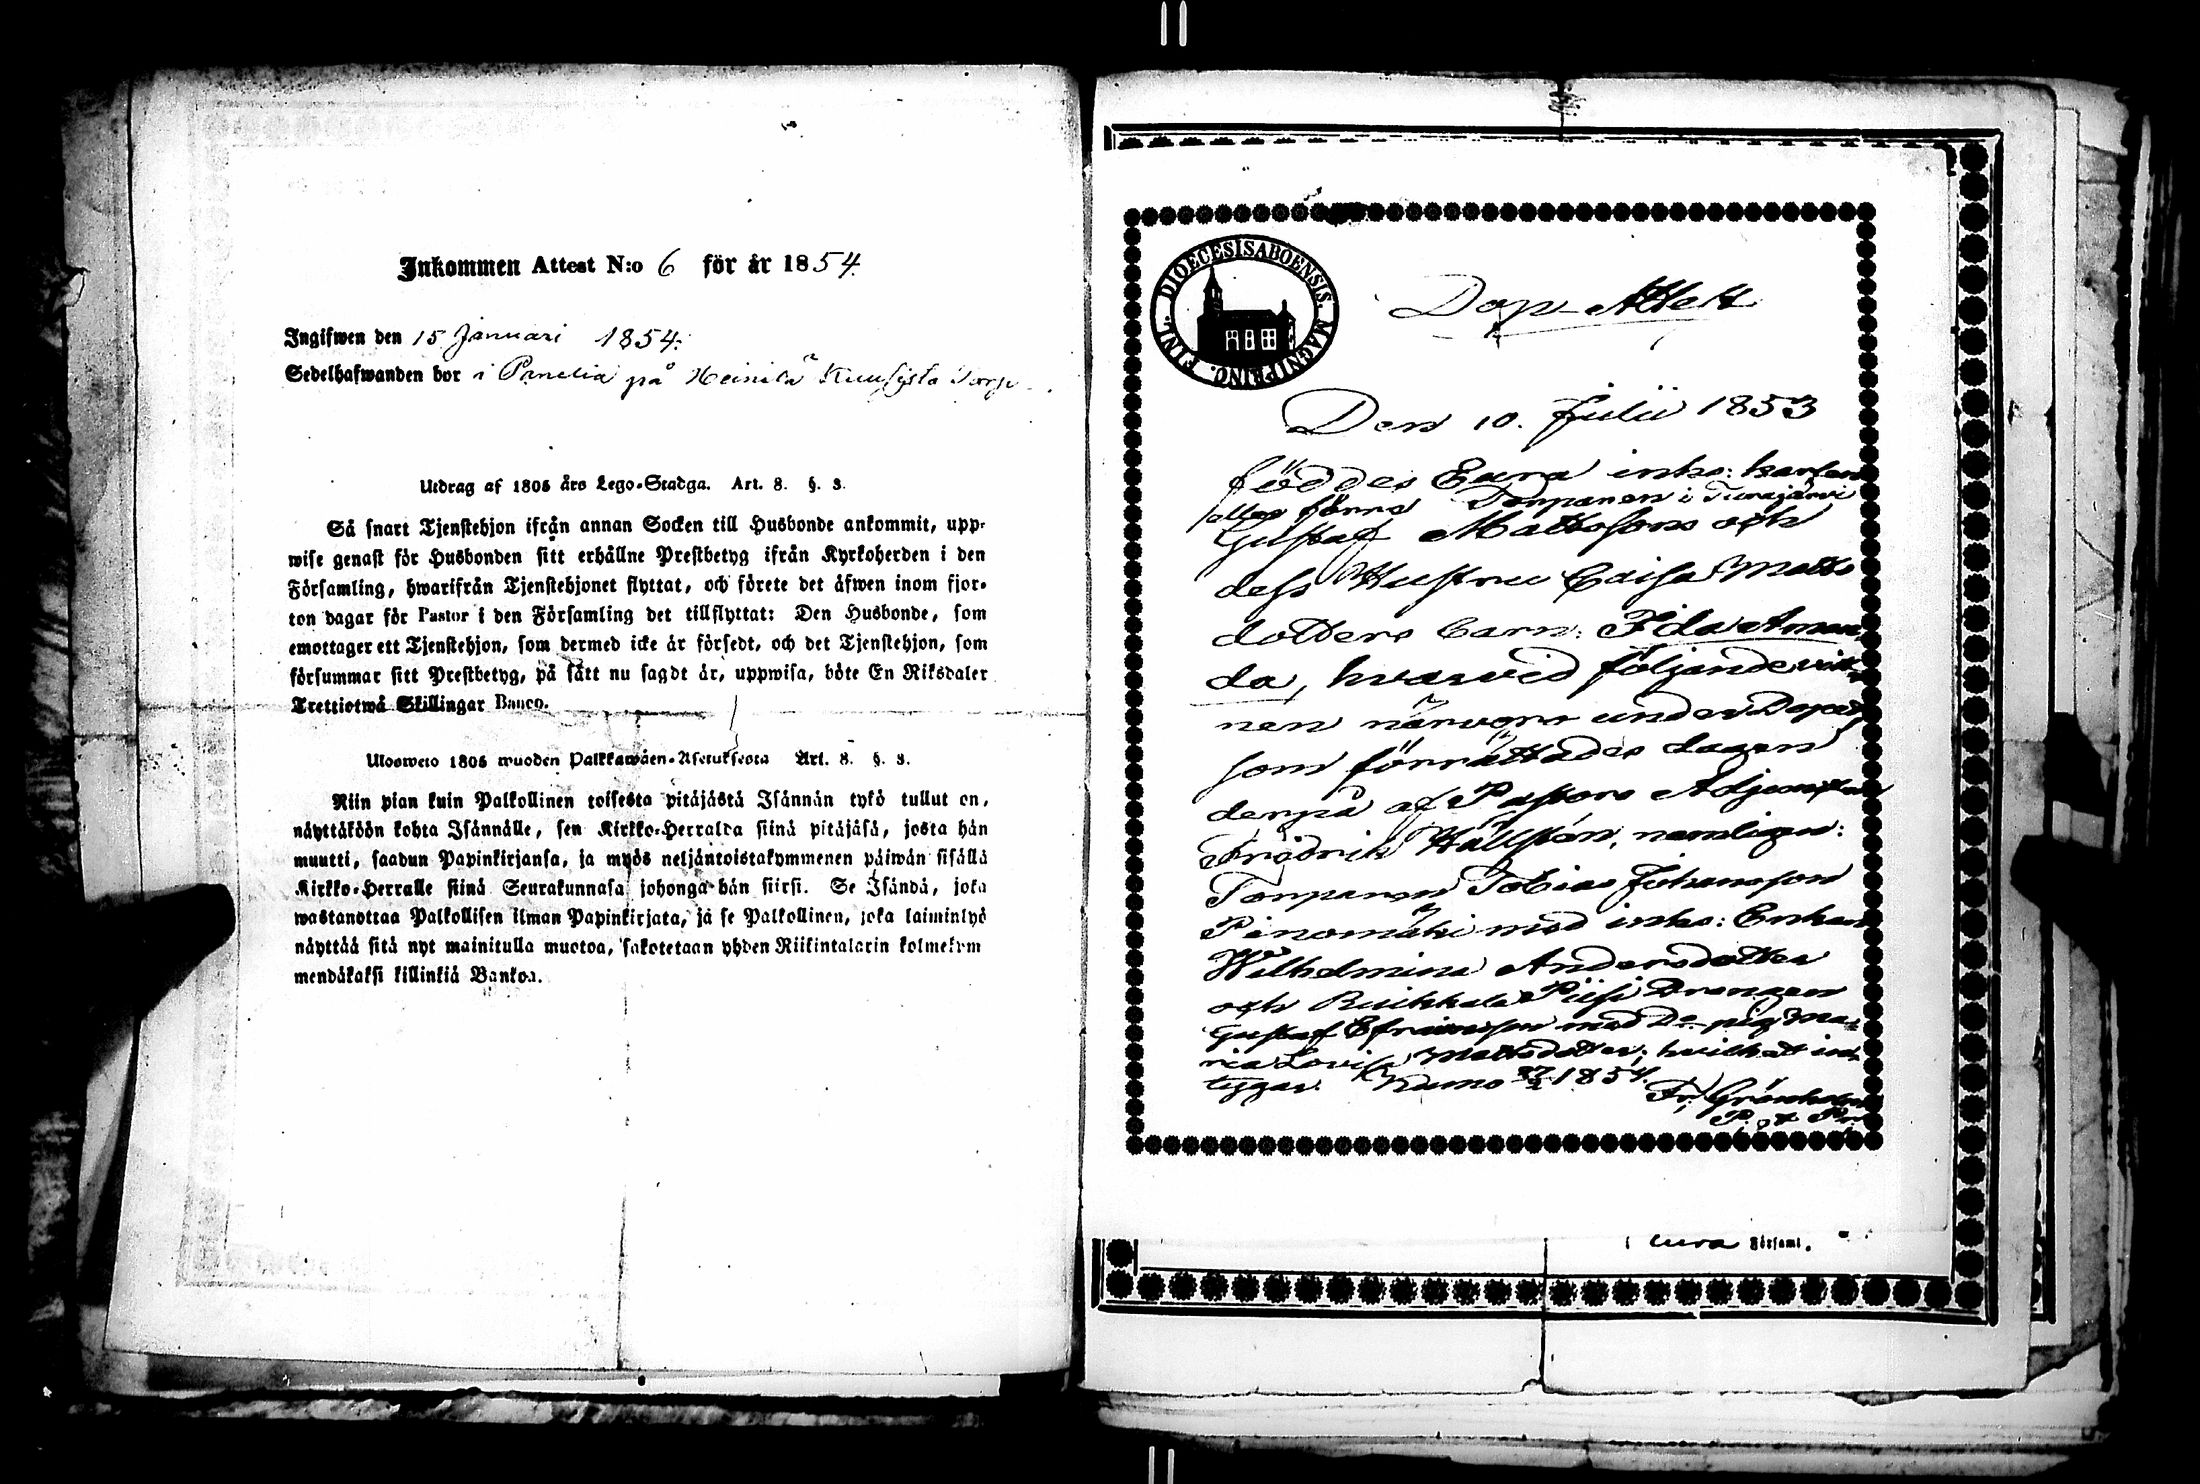 Inkommen Attest N:o 6 för år 1854.
Ingifwen den 15 Januari 1854.
Sedelhafwanden bor i Panelia på Heinilä Kuusisto Torp
Utdrag af 1805 års Lego-Stadga. Art. 8. §. 3.
Så snart Tjenstehjon ifrån annan Socken till Husbonde ankommit, upp-
wise genast för Husbonden sitt erhållne Prestbetyg ifrån Kyrkoherden i den
Församling, hwarifrån Tjenstehjonet flyttat, och förete det äfwen inom fjor-
ton dagar för Pastor i den Församling det tillflyttat: Den Husbonde, som
emottager ett Tjenstehjon, som dermed icke är försedt, och det Tjenstehjon, som
försummar sitt Prestbetyg, på sätt nu sagdt är, uppwisa, böte En Riksdaler
Trettiotwå Skillingar Banco.
Ulosweto 1805 wuoden Palkkawäen-Asetuksesta Art. 8. §. 3.
Niin pian kuin Palkollinen toisesta pitäjästä Isännän tykö tullut on,
näyttäköön kohta Isännälle, sen Kirkko-Herralda siinä pitäjäsä, josta hän
muutti, saadun Papinkirjansa, ja myös neljäntoistakymmenen päiwän sisällä
Kirkko-Herralle siinä Seurakunnasa johonga hän siirsi. Se Isändä, joka
wastanottaa Palkollisen ilman Papinkirjata, ja se Palkollinen, joka laiminlyö
näyttää sitä nyt mainitulla muotoa, sakotetaan yhden Riikintalarin kolmekym
mendäkaksi killinkiä Bankoa.
DIOECESIS ABOENSIS. MAGNI PRINC. FINL.
Dop-Attest
Den 10. Julii 1853
föddes Eura inhs: karlen
eller förra Torparen i Turajärvi
Gustaf Mattssons och
dess Hustru Caisa Matts
dotters barn: Ida Aman
da, hvarvid följande vitt-
nen närvoro under Dopet,
som förrättades dagen
derpå af Pastors Adjuncten
Frädrik Hällfors, nemligen:
Torparen Tobias Johansson
Pinomäki med inhs: Enkan
Wilhelmina Andersdotter
och Buikkala Piisi Drengen
Gustaf Efraimsson med Do pig Ma-
ria Lovisa Mattsdotter; hvilket in-
tygar. Kiumo 27/2 1854.
Fr: Grönholm
P. o Pr.
i Eura Församl.